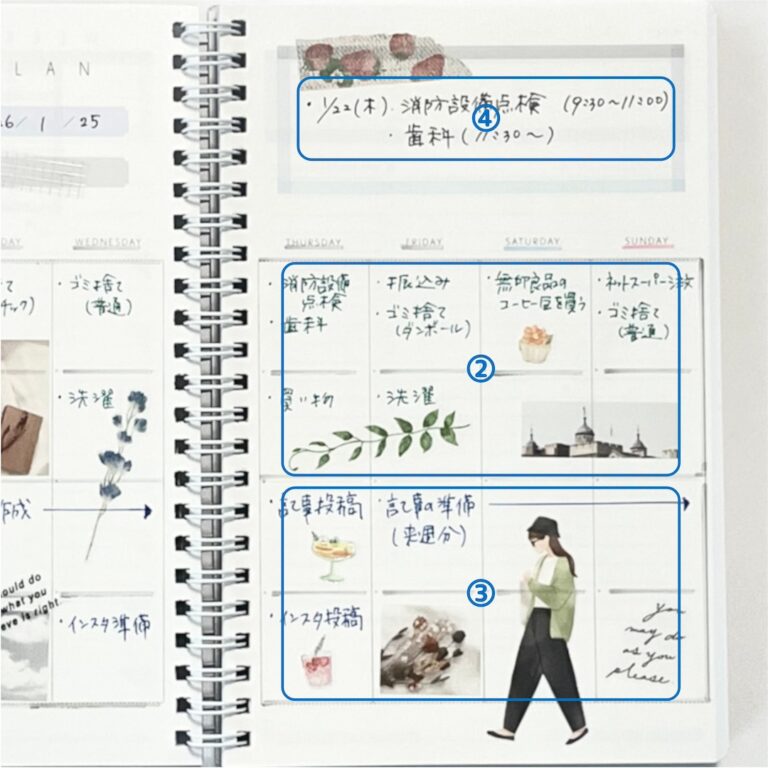 LAN
6/1/25
④
・1/22(木)・消防設備点検 (9:30～11:00)
・歯科 (11:30～)
DAY
WEDNESDAY
THURSDAY
FRIDAY
SATURDAY
SUNDAY
て
チック)
・ゴミ捨て
(普通)
・洗濯
・消防設備
点検
・歯科
・振込み
・ゴミ捨て
(ダンボール)
・無印良品の
コーヒー豆を買う
・ネットスーパー
・ゴミ捨て
(普通)
②
買い物
・洗濯
作成
ould do
what you
eve is right.
・インスタ準備
・記事投稿
・記事の準備
(来週分)
③
・インスタ投稿
you
may do
as you
please